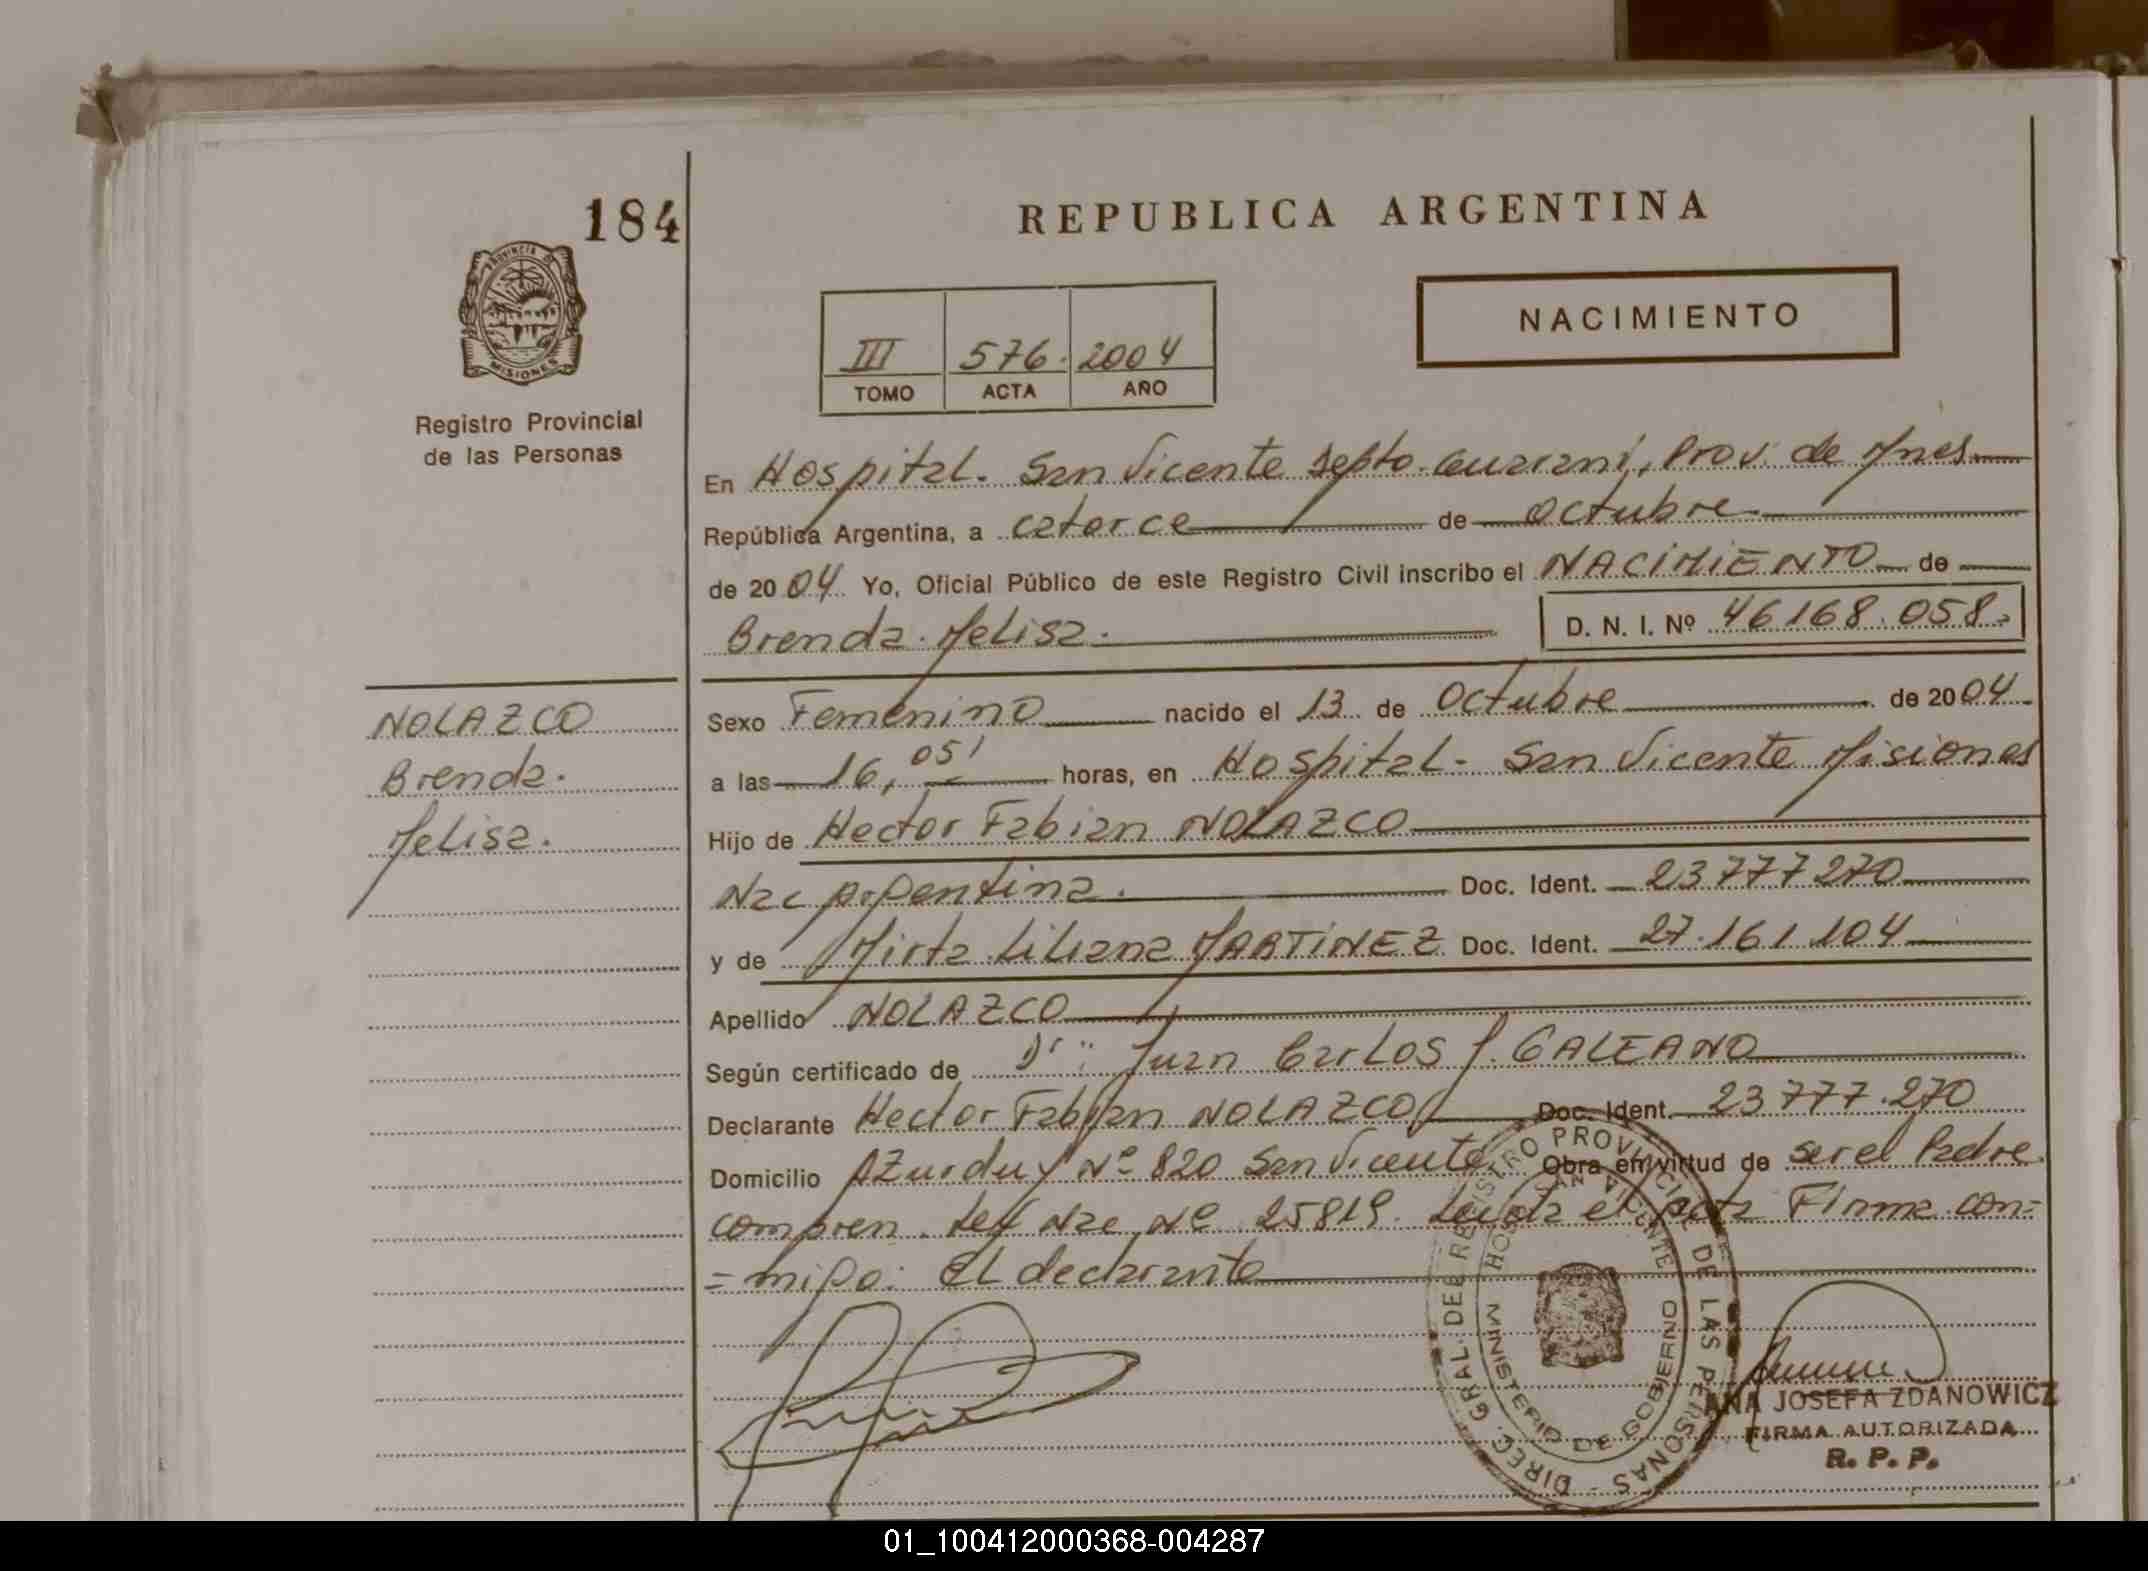 184
REPUBLICA ARGENTINA
PROVINCIA DE
MISIONES
Registro Provincial
de las Personas
III 576. 2004
TOMO ACTA AÑO
NACIMIENTO
En Hospital. San Vicente Depto. Guarani, Prov. de Mnes
República Argentina, a catorce de octubre
de 2004 Yo, Oficial Público de este Registro Civil inscribo el NACIMIENTO de
Brenda Melisa. D. N. I. Nº 46168.058
NOLAZCO
Brenda.
Melisa.
Sexo Femenino nacido el 13 de Octubre de 2004
a las 16,05' horas, en Hospital- San Vicente Misiones
Hijo de Hector Fabian NOLAZCO
Nac Argentina. Doc. Ident. 23777270
y de Mirta Liliana MARTINEZ Doc. Ident. 27.161.104
Apellido NOLAZCO
Según certificado de Dr: Juan Carlos J. GALEANO
Declarante Hector Fabian NOLAZCO Doc. Ident. 23777.270
Domicilio Azurduy Nº 820 San Vicente Obra en virtud de ser el Padre
compren. Nac Nº 25819. Leida el acta Firma con=
=migo: El declarante
DIREC. GRAL. DEL REGISTRO PROVINCIAL DE LAS PERSONAS
SAN VICENTE
MINISTERIO DE GOBIERNO
ANA JOSEFA ZDANOWICZ
FIRMA AUTORIZADA
R. P. P.
01_100412000368-004287